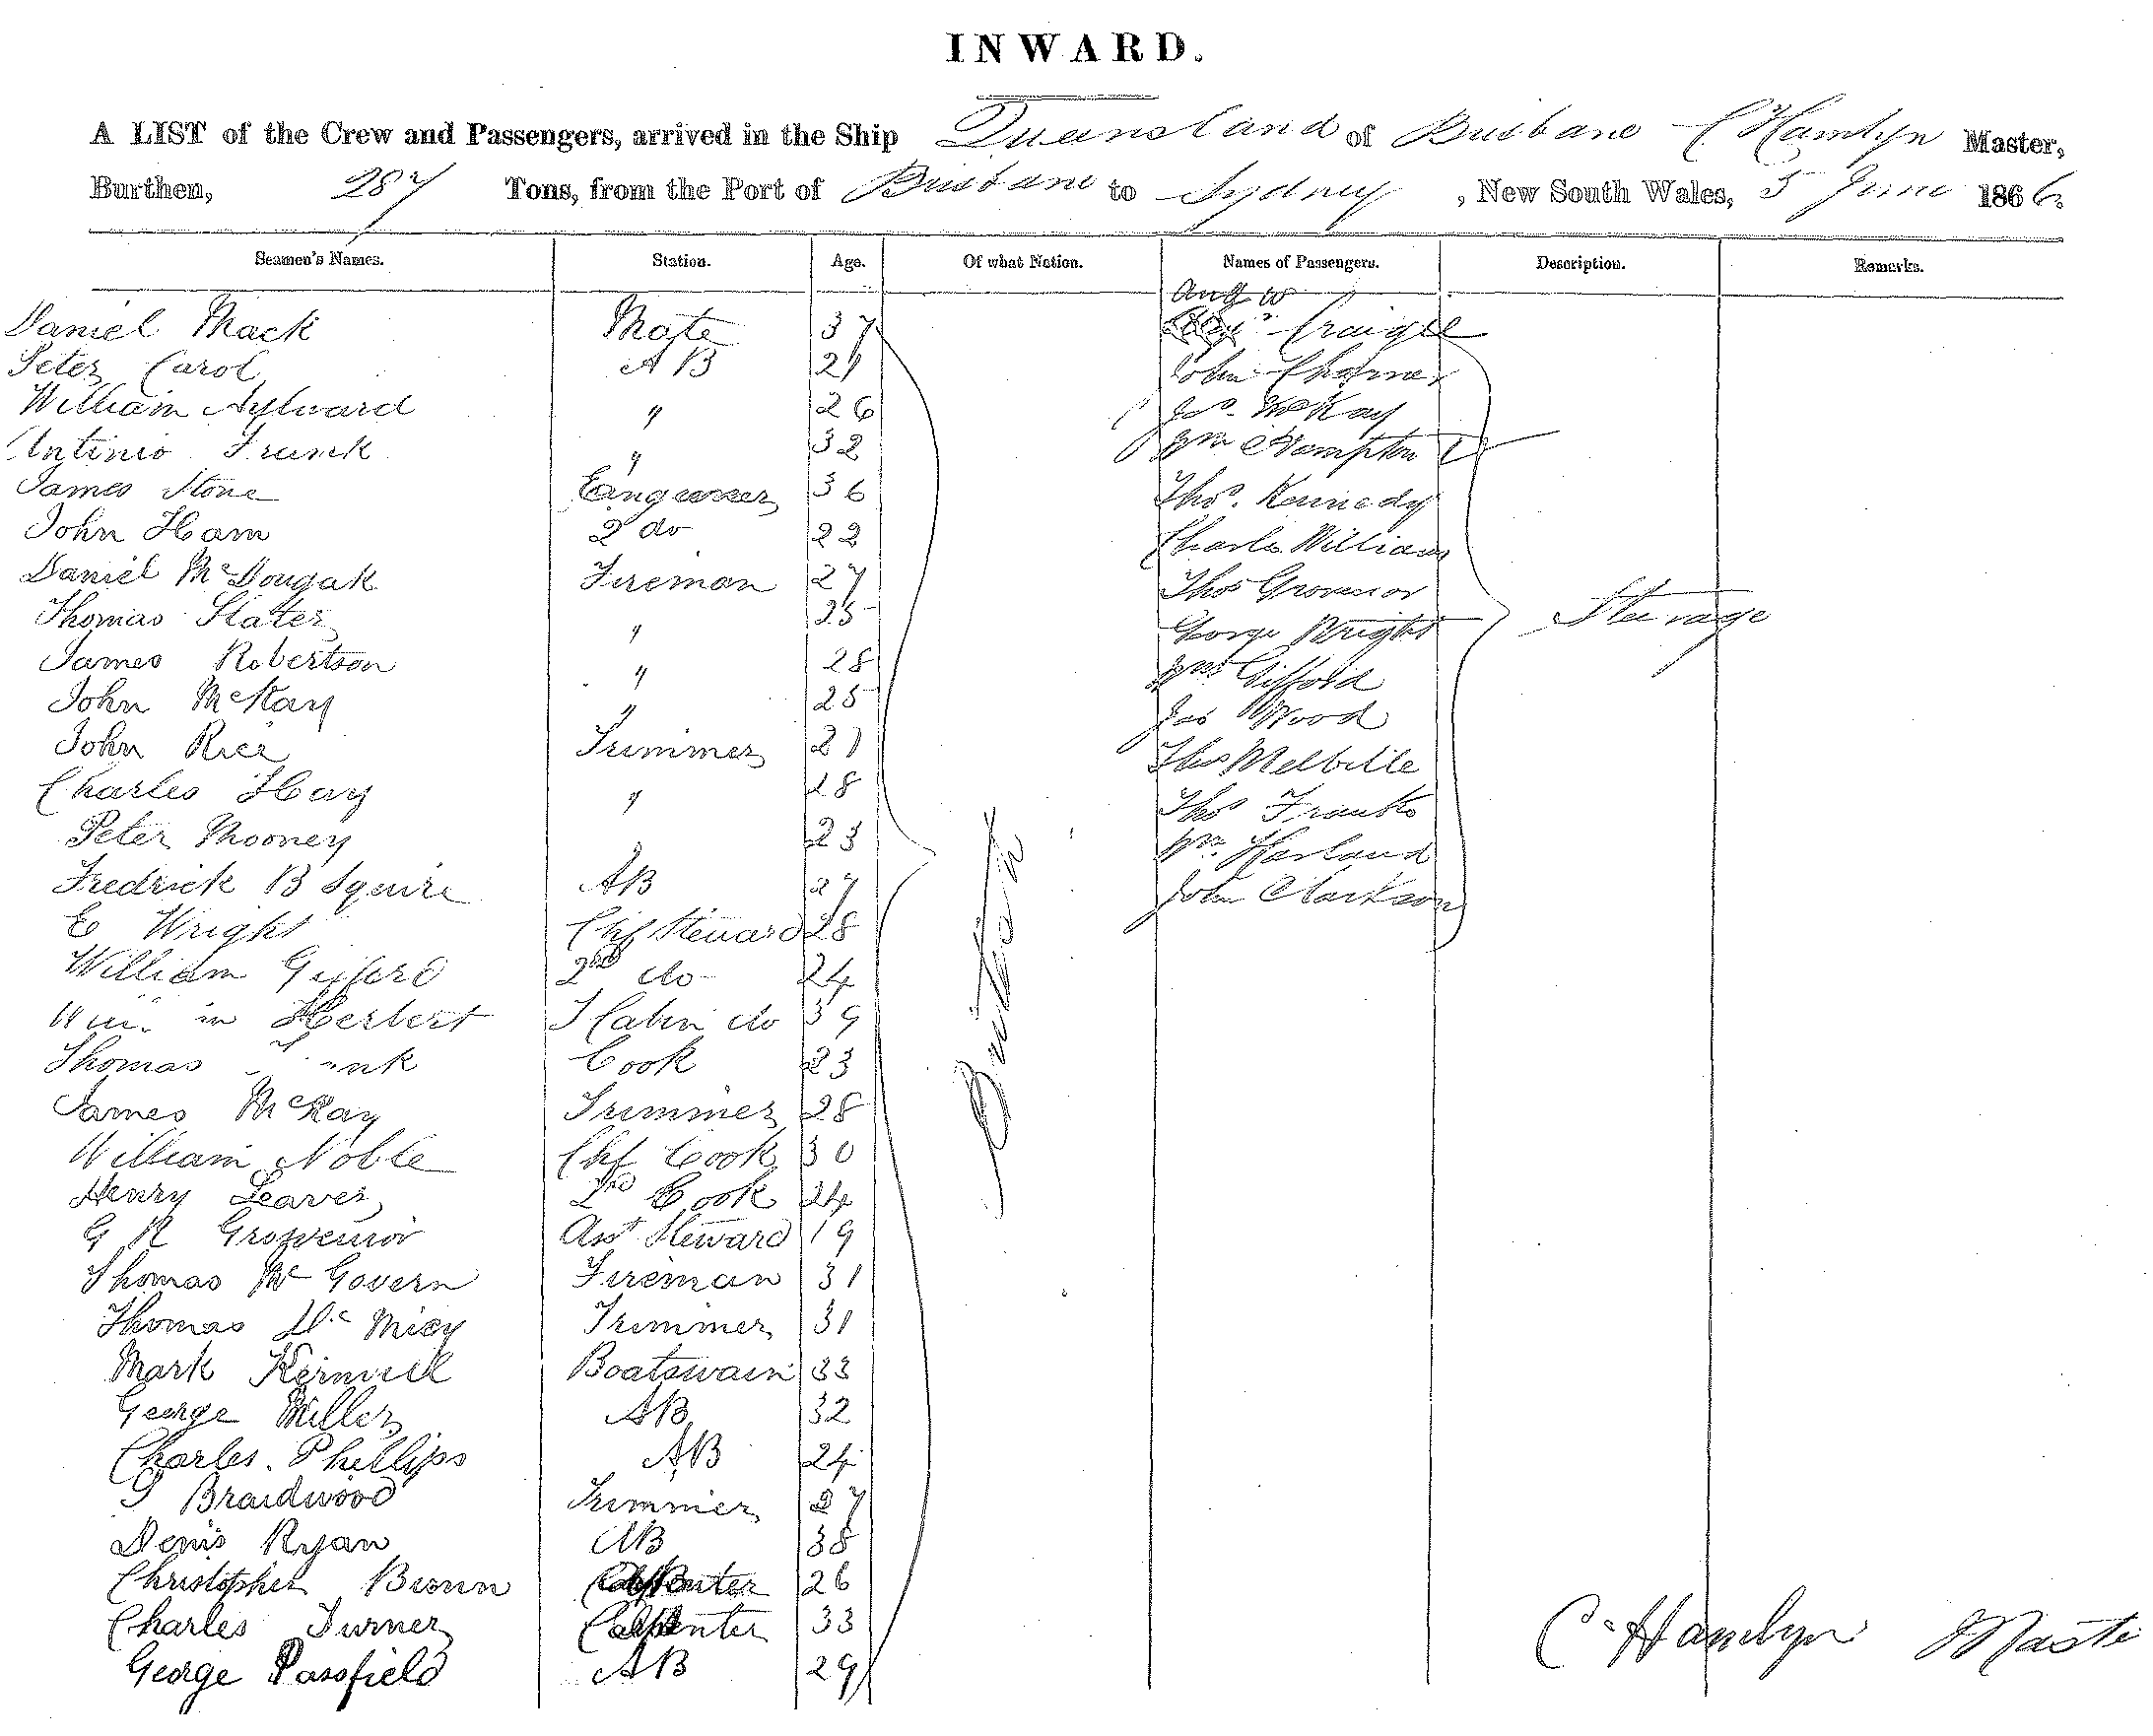 INWARD.
A LIST of the Crew and Passengers, arrived in the Ship Queensland of Brisbane C Hamlyn Master,
Burthen, 287 Tons, from the Port of Brisbane to Sydney, New South Wales, 5 June 1866.
Seamen's Names. Station. Age. Of what Nation. Names of Passengers. Description. Remarks.
Daniel Mack Mate 37 Craigil
Peter Carol AB 21 John
William Aylward " 26 Jas. McKay
Antinio Frank " 32 Wm Hampton
James Stone Engineer 36 Thos. Kennedy
John Ham 2 do 22 Charles Williams
Daniel McDougak Fireman 27 Thos Grovenor
Thomas Slater " 25 George Wright Steerage
James Robertson " 28 Wm Gifford
John McKay " 25 Jas Wood
John Rice Trimmer 21 Thos Melville
Charles Hay " 28 Thos Franks
Peter Mooney 23 Wm. Harland
Fredrick B Squire AB 27 John Clarkson
E Wright Chf Steward 28
William Gifford 2nd do 24
Herbert Cabin do 39
Thomas Cook 23
British
James McKay Trimmer 28
William Noble Chf Cook 30
Henry Leaver 2nd Cook 24
G R Grosvenior Asst Steward 19
Thomas Mc Govern Fireman 31
Thomas Trimmer 31
Mark Boatswain 33
George Miller AB 32
Charles. Phillips AB 24
Braidwood Trimmer 27
Denis Ryan AB 38
Christopher Brown 26
Charles Turner Carpenter 33 C Hamlyn Master
George Passfield AB 29